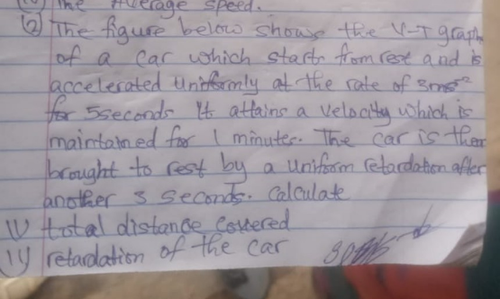 The Average speed.
② The figure below shows the V-T graph
of a car which starts from rest and is
accelerated uniformly at the rate of 3ms⁻²
for 5seconds It attains a velocity which is
maintained for 1 minutes. The car is then
brought to rest by a uniform retardation after
another 3 seconds. Calculate
(i) total distance covered
(ii) retardation of the car